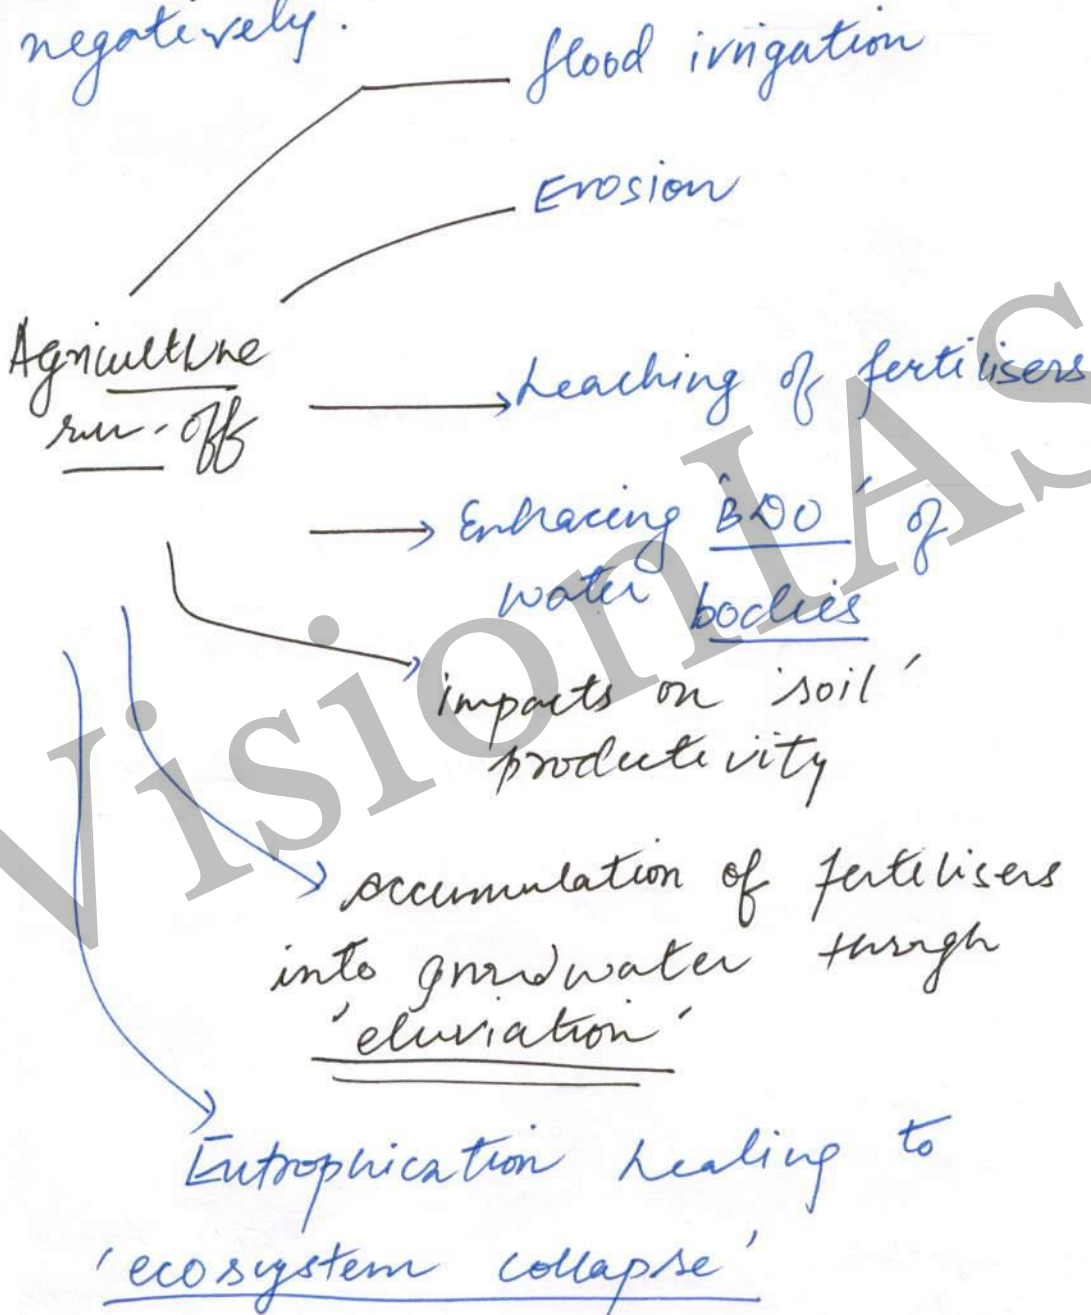 negatively.
flood irrigation
Erosion
Agriculture
run-off
Leaching of fertilisers
Enhacing 'BDO' of
water bodies
impacts on 'soil'
productivity
accumulation of fertilisers
into groundwater through
'eluviation'
Eutrophication Leading to
'ecosystem collapse'
VisionIAS